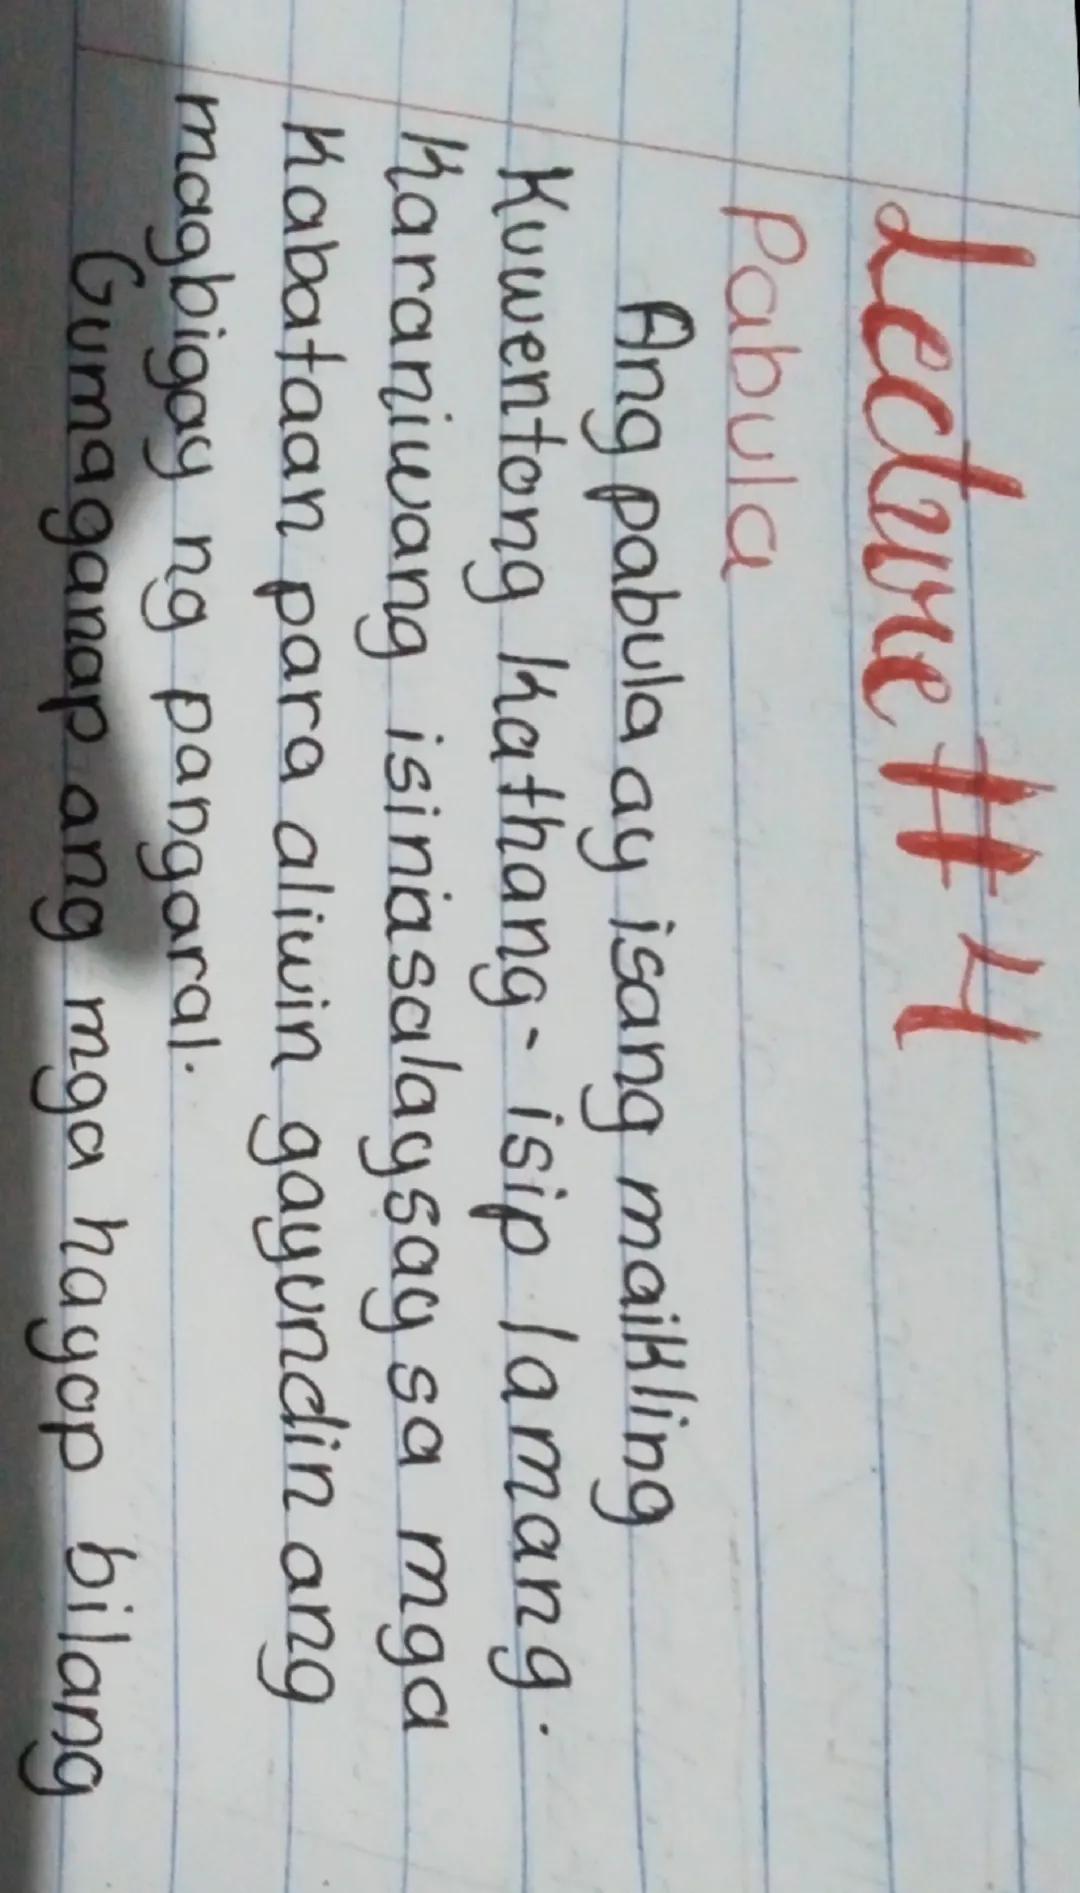 Lecture #4
Pabula
Ang pabula ay isang maikling
Kuwentong kathang-isip lamang.
Karaniwang isinasalaysay sa mga
Kabataan para aliwin gayundin ang
magbigay ng pangaral.
Gumaganap ang mga hayop bilang